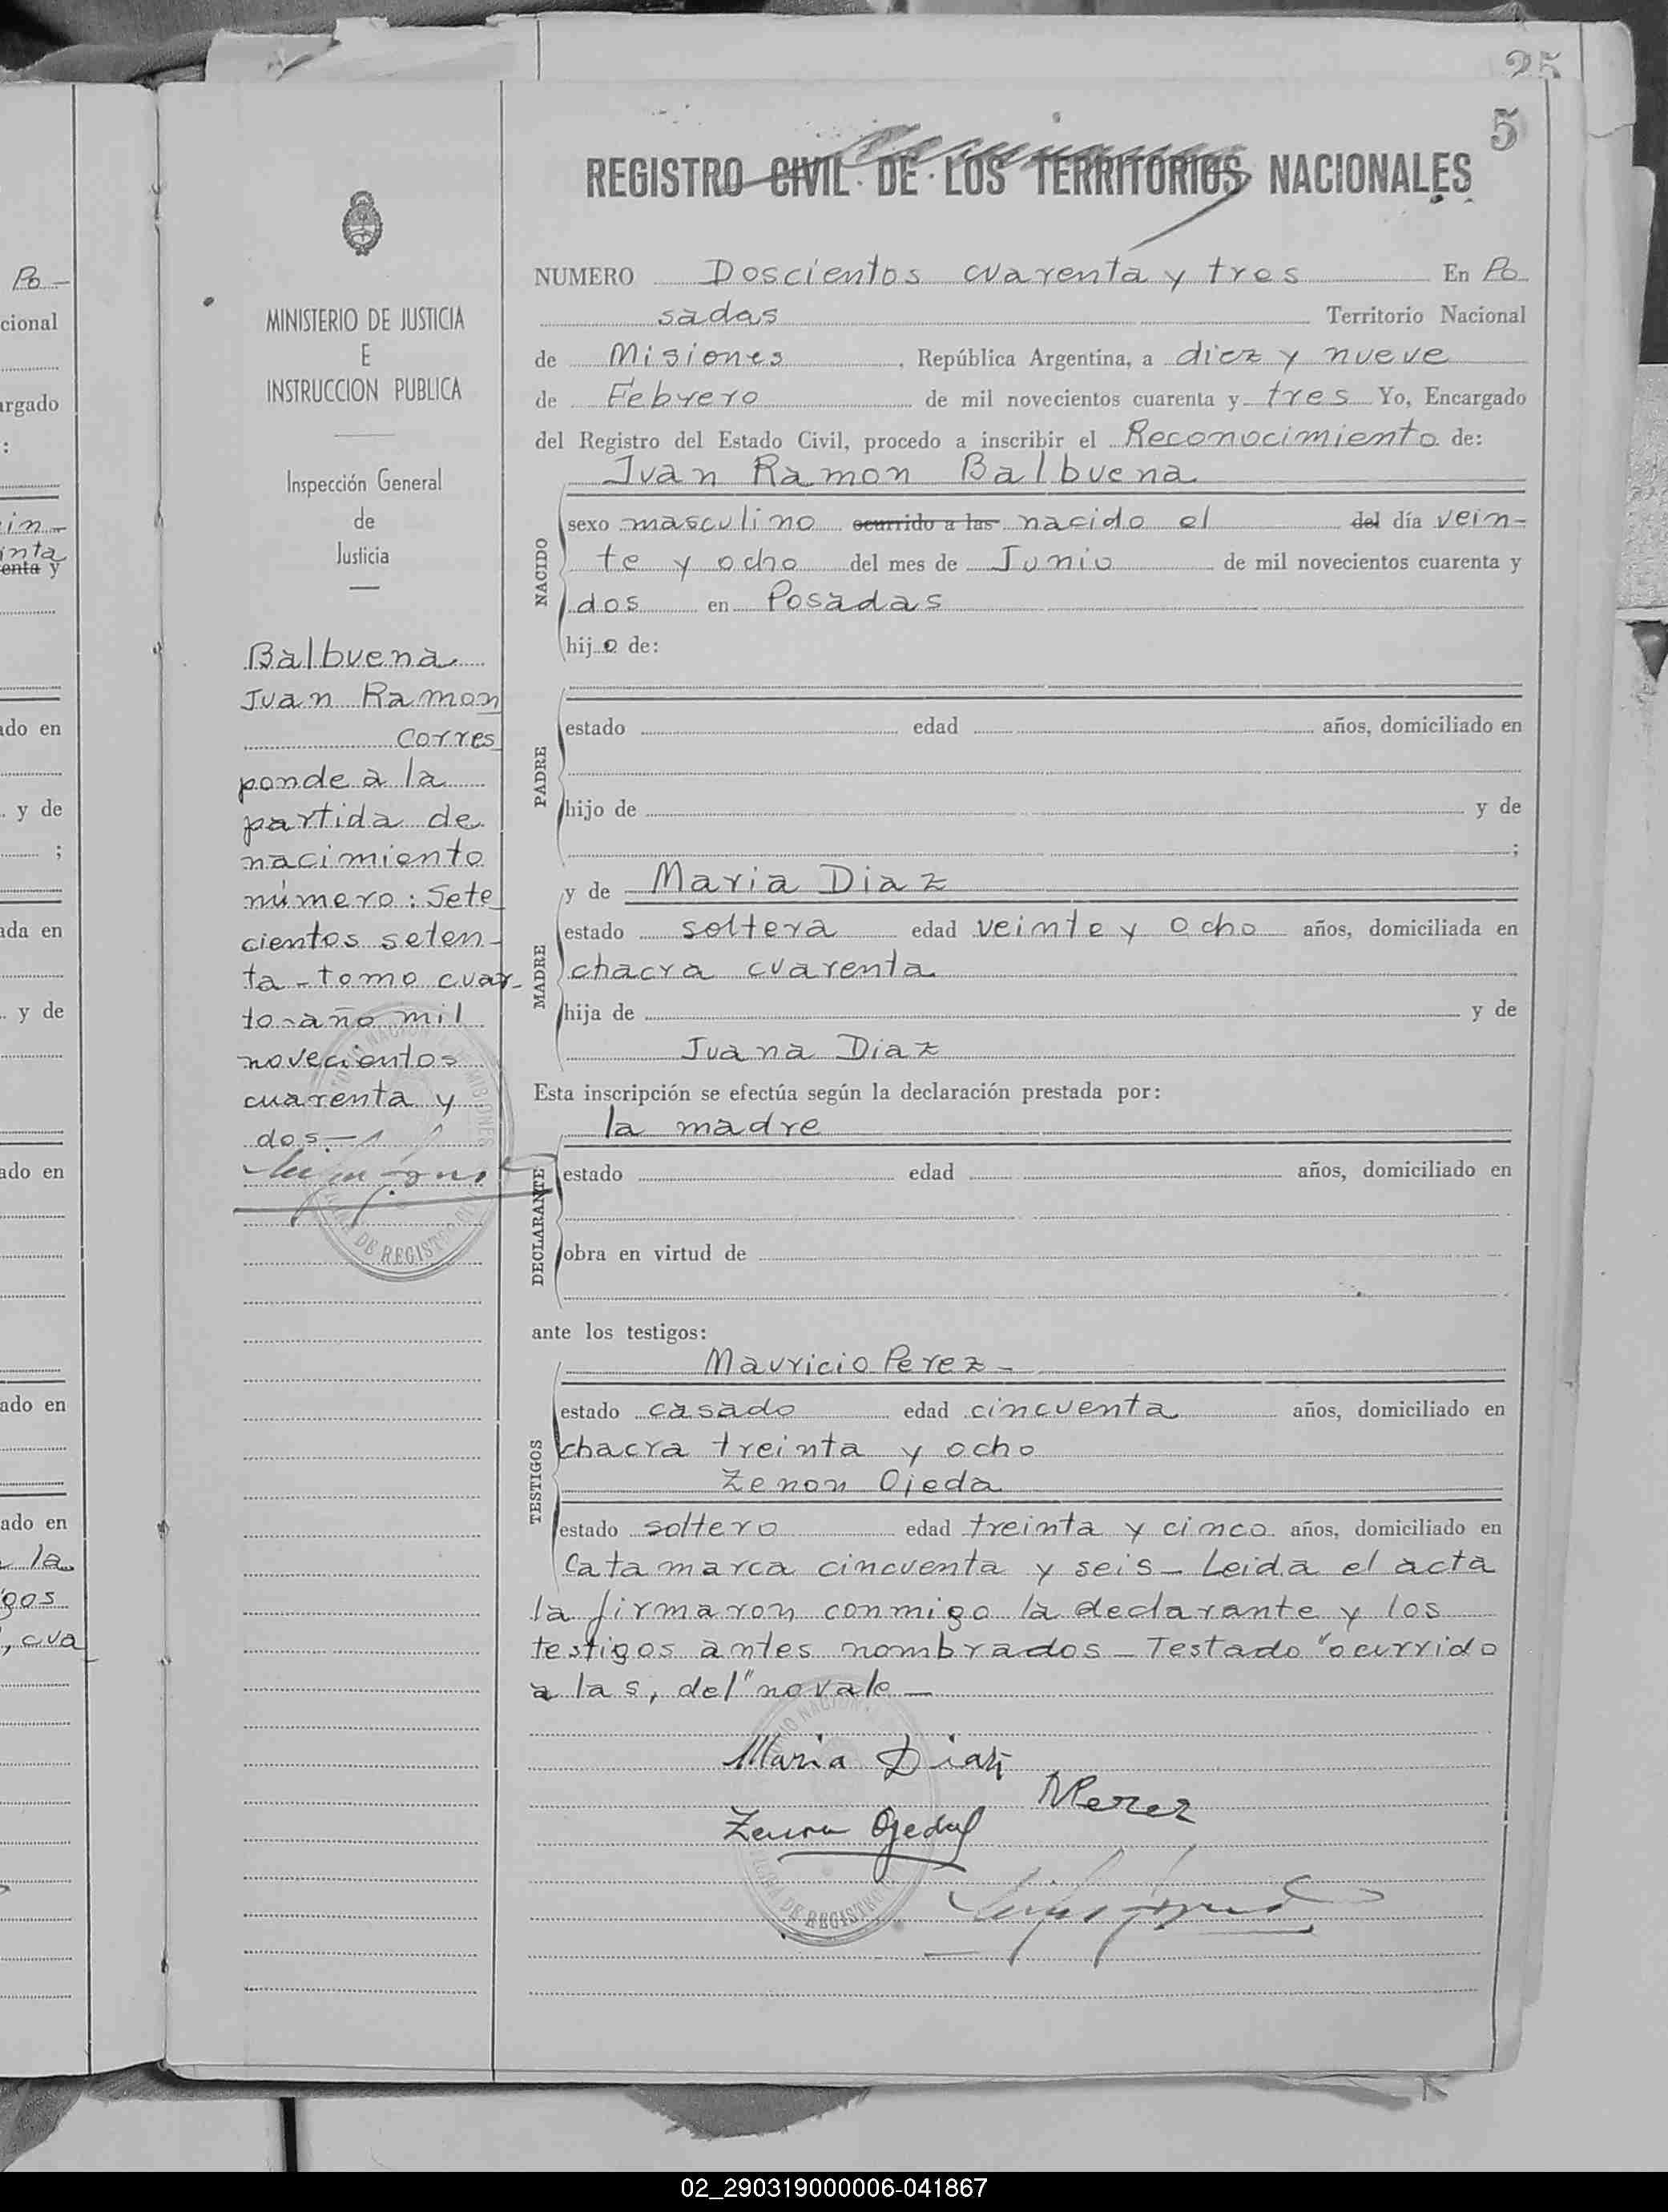 25
5
REGISTRO CIVIL DE LOS TERRITORIOS NACIONALES
MINISTERIO DE JUSTICIA
E
INSTRUCCION PUBLICA
Inspección General
de
Justicia
Balbuena
Juan Ramon
corres
ponde a la
partida de
nacimiento
número: Sete
cientos seten-
ta - tomo cuar-
to - año mil
novecientos
cuarenta y
dos -
NUMERO Doscientos cuarenta y tres En Po
sadas Territorio Nacional
de Misiones, República Argentina, a diez y nueve
de Febrero de mil novecientos cuarenta y tres Yo, Encargado
del Registro del Estado Civil, procedo a inscribir el Reconocimiento de:
Juan Ramon Balbuena
NACIDO
sexo masculino ocurrido a las nacido el del día vein-
te y ocho del mes de Junio de mil novecientos cuarenta y
dos en Posadas
hijo de:
PADRE
estado edad años, domiciliado en
hijo de y de
;
MADRE
y de Maria Diaz
estado soltera edad veinte y ocho años, domiciliada en
chacra cuarenta
hija de y de
Juana Diaz
Esta inscripción se efectúa según la declaración prestada por:
la madre
DECLARANTE
estado edad años, domiciliado en
obra en virtud de
ante los testigos:
TESTIGOS
Mauricio Perez -
estado casado edad cincuenta años, domiciliado en
chacra treinta y ocho
Zenon Ojeda
estado soltero edad treinta y cinco años, domiciliado en
Catamarca cincuenta y seis - Leida el acta
la firmaron conmigo la declarante y los
testigos antes nombrados - Testado "ocurrido
a las, del" no vale -
Maria Diaz
MPerez
Zenon Ojeda
DE REGISTRO
Po -
cional
argado
:
in -
inta
enta y
ado en
y de
;
ada en
y de
ado en
ado en
ado en
la
gos
, cua
02_290319000006-041867